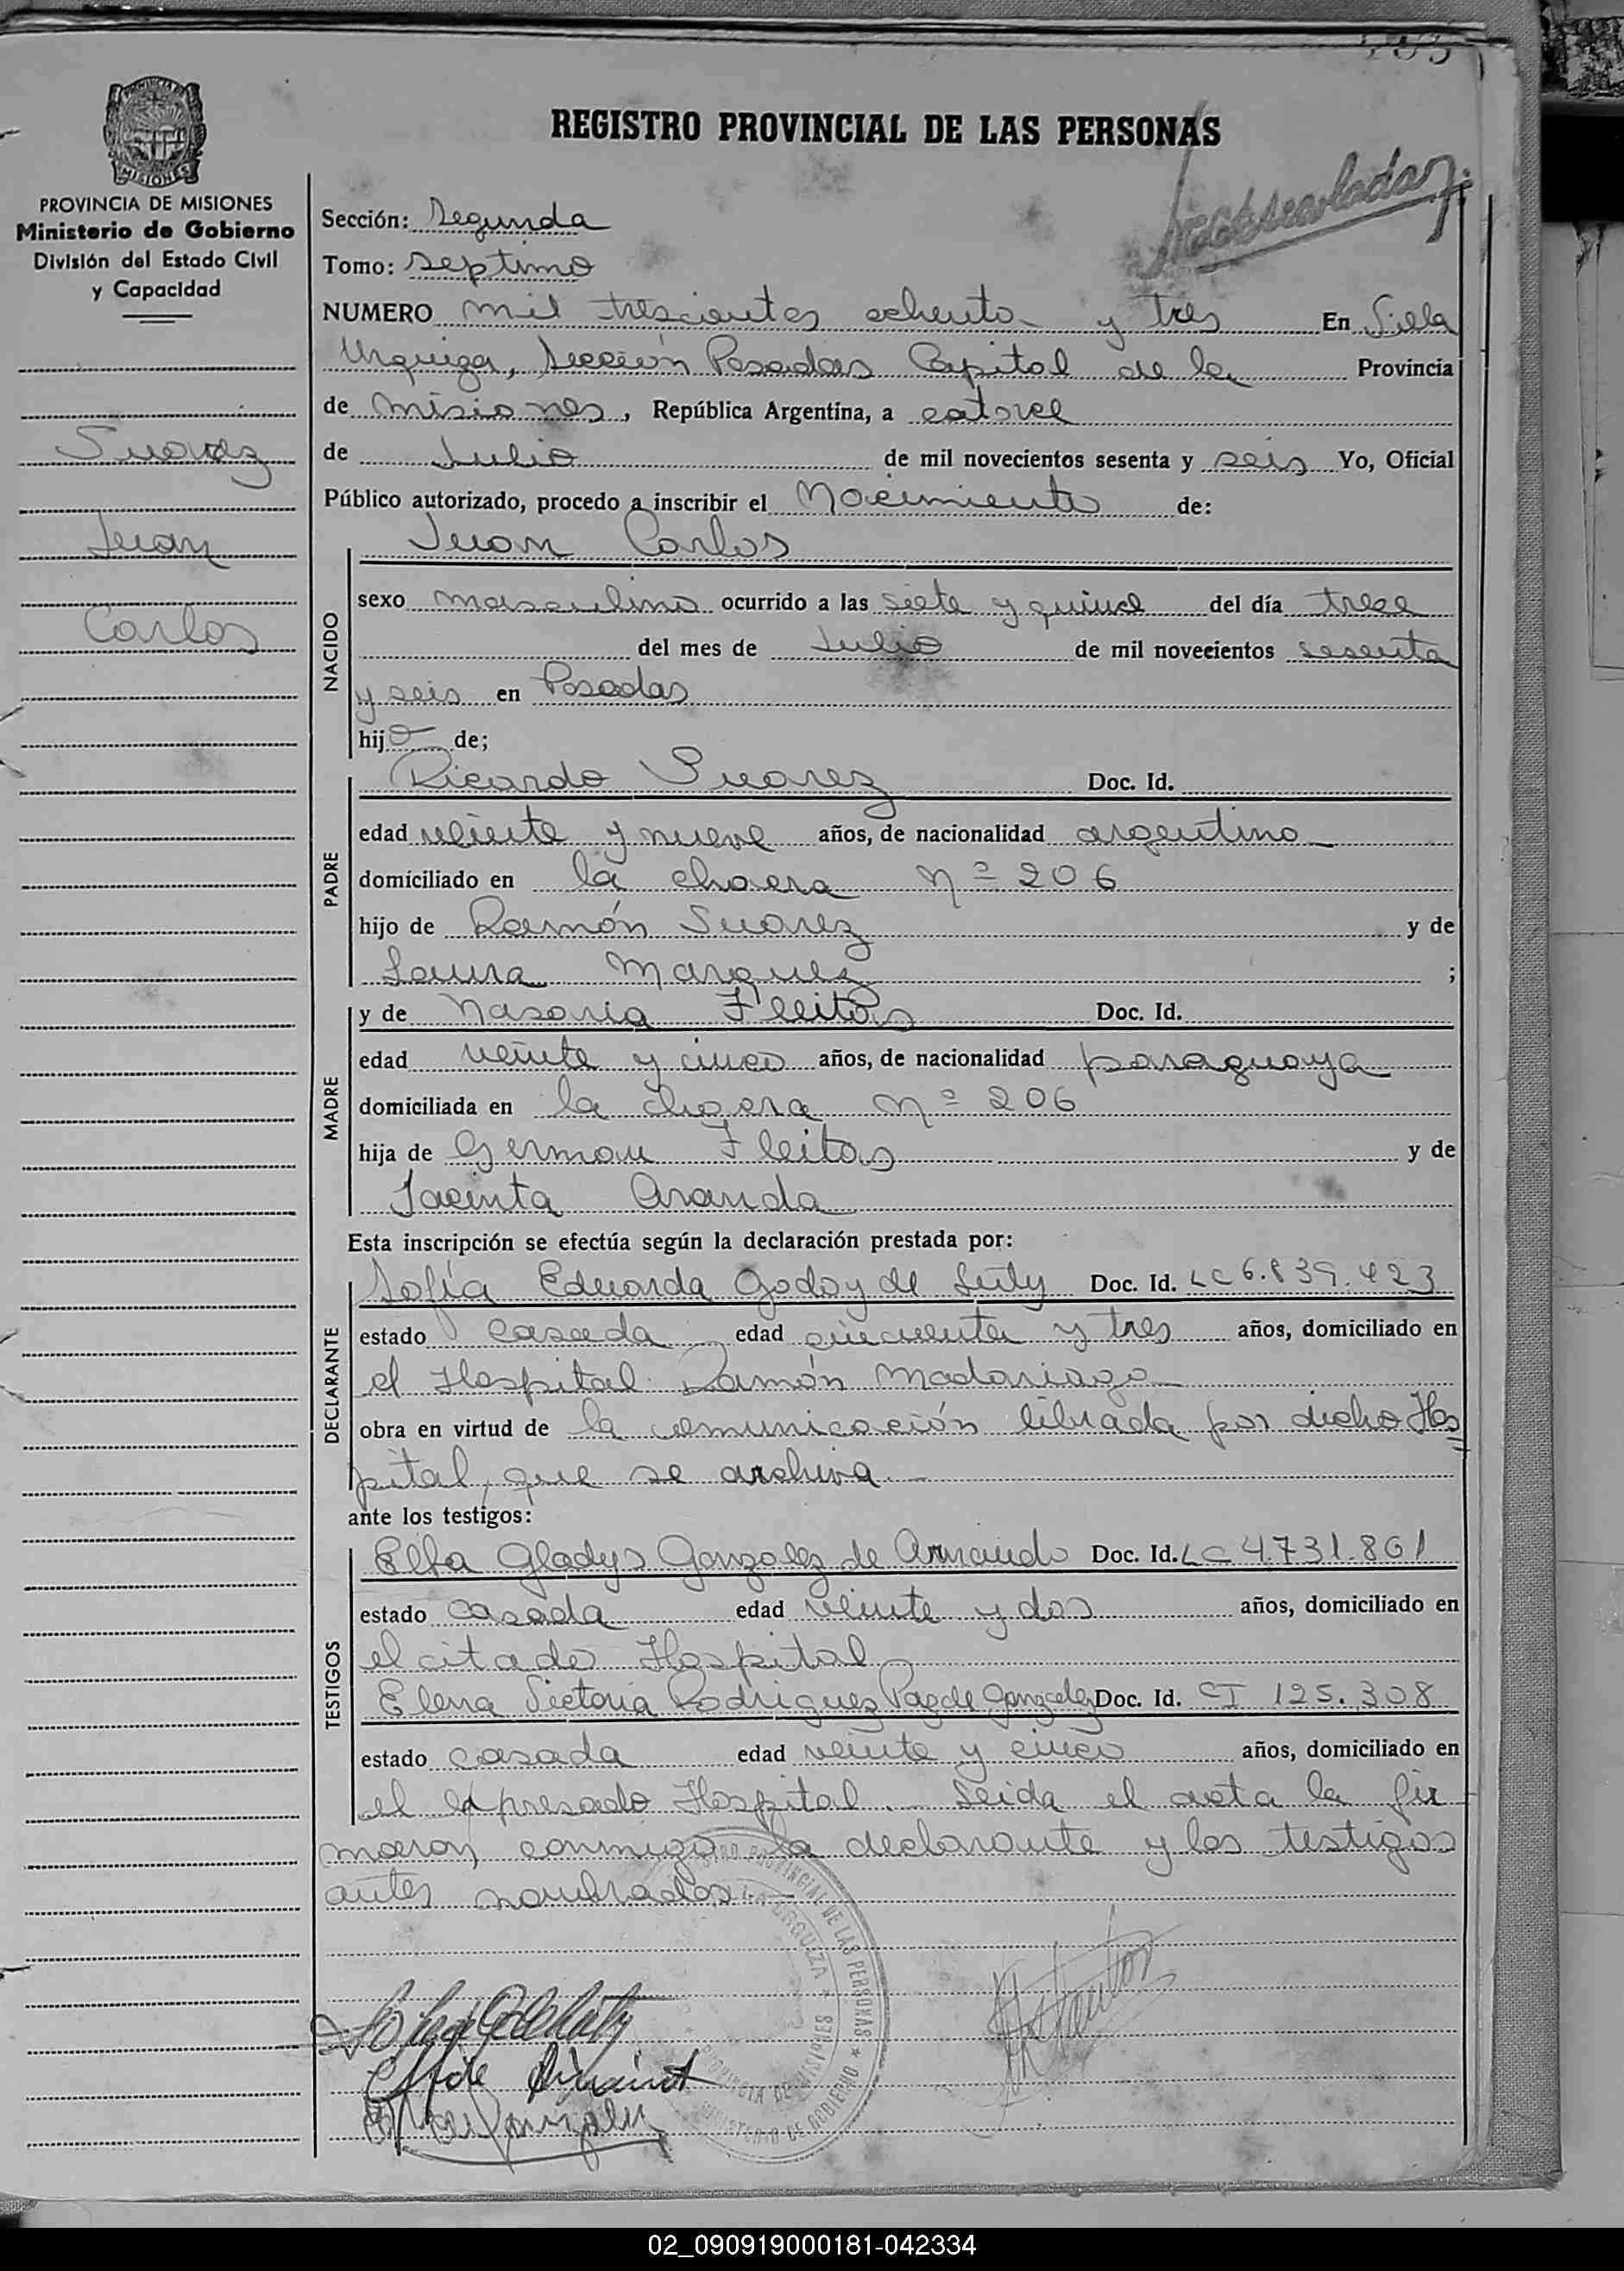 REGISTRO PROVINCIAL DE LAS PERSONAS
PROVINCIA DE MISIONES
Ministerio de Gobierno
División del Estado Civil
y Capacidad
Suarez
Juan
Carlos
Sección: Segunda
Tomo: septimo
NUMERO mil trescientos ochenta y tres En Villa
Urquiza, Sección Posadas Capital de la Provincia
de misiones, República Argentina, a catorce
de Julio de mil novecientos sesenta y seis Yo, Oficial
Público autorizado, procedo a inscribir el Nacimiento de:
Juan Carlos
NACIDO
sexo masculino ocurrido a las siete y quince del día trece
del mes de Julio de mil novecientos sesenta
y seis en Posadas
hijo de;
PADRE
Ricardo Suarez Doc. Id.
edad veinte y nueve años, de nacionalidad argentino
domiciliado en la chacra nº 206
hijo de Ramón Suarez y de
Laura Marquez ;
MADRE
y de Nasaria Fleitas Doc. Id.
edad veinte y cinco años, de nacionalidad paraguaya
domiciliada en la chacra nº 206
hija de German Fleitas y de
Jacinta Aranda
Esta inscripción se efectúa según la declaración prestada por:
DECLARANTE
Sofía Eduarda Godoy de Doc. Id. LC 6.839.423
estado casada edad cincuenta y tres años, domiciliado en
el Hospital Ramón Madariaga
obra en virtud de la comunicación librada por dicho Hos
pital, que se archiva.
ante los testigos:
TESTIGOS
Elba Gladys Gonzalez de Doc. Id. LC 4.731.861
estado casada edad veinte y dos años, domiciliado en
el citado Hospital
Elena Victoria Rodriguez Paz de Gonzalez Doc. Id. CI 125.308
estado casada edad veinte y cinco años, domiciliado en
el expresado Hospital. Leida el acta la fir
maron conmigo la declarante y los testigos
antes nombrados.
02_090919000181-042334